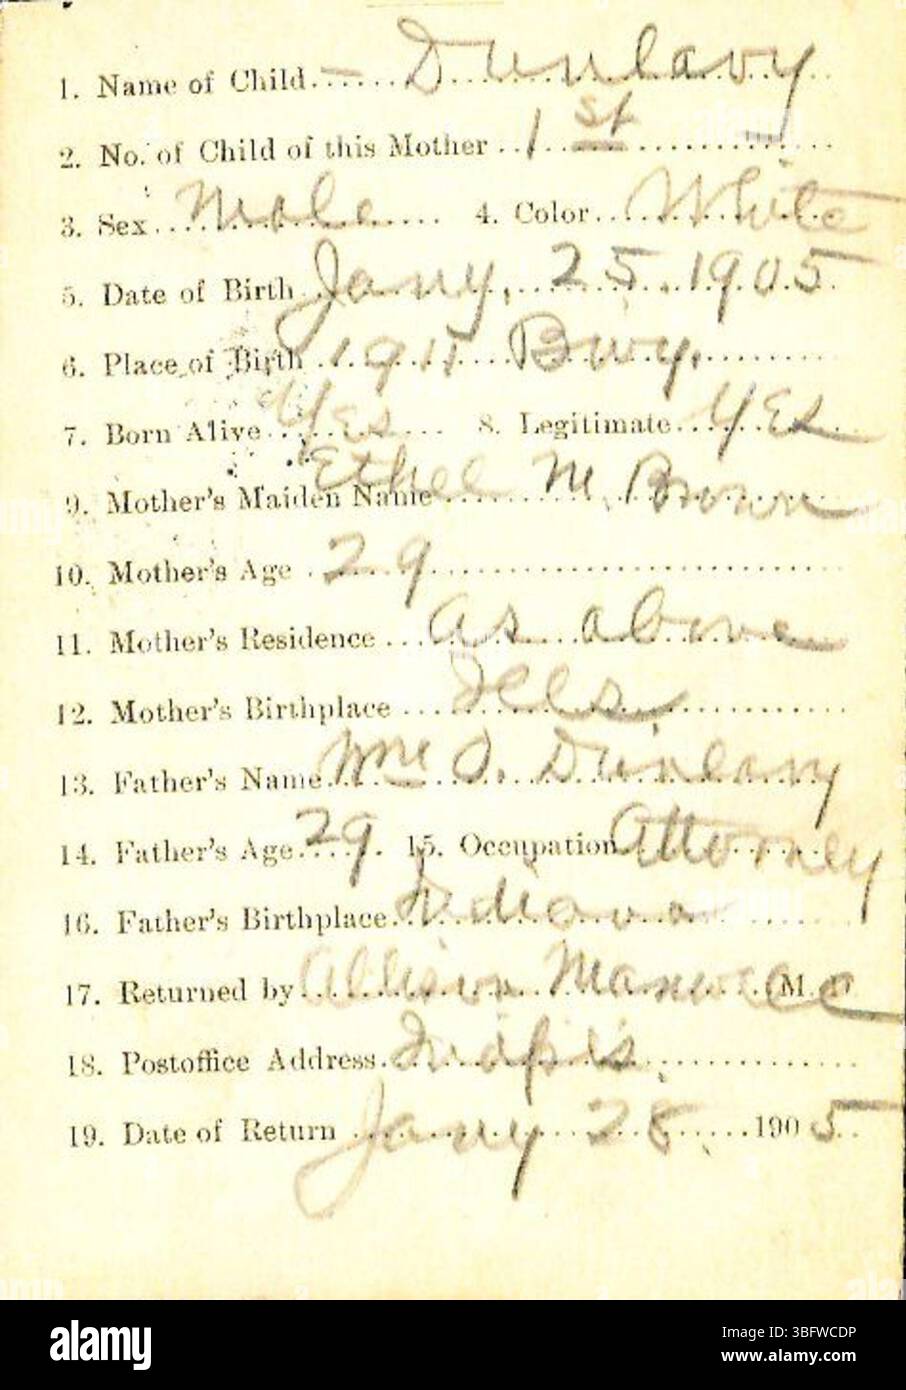 1. Name of Child – Dunlavy
2. No. of Child of this Mother 1 st
3. Sex Male 4. Color White
5. Date of Birth Jany. 25 1905
6. Place of Birth Bwy.
7. Born Alive Yes 8. Legitimate Yes
9. Mother's Maiden Name Ethel M. Brown
10. Mother's Age 29
11. Mother's Residence as above
12. Mother's Birthplace Ills
13. Father's Name Dunlavy
14. Father's Age 29. 15. Occupation Attorney
16. Father's Birthplace Indiana
17. Returned by Allison Maxwell M
18. Postoffice Address Indpls
19. Date of Return Jany 28 1905
alamy
Image ID: 3BFWCDP
www.alamy.com